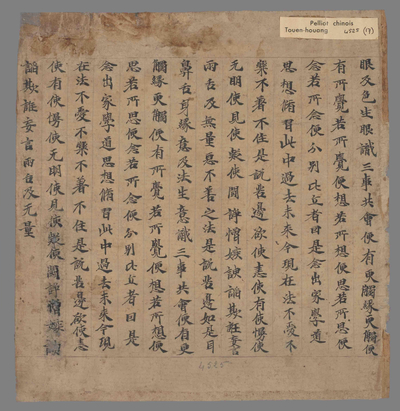 Pelliot chinois
Touen-houang 4525 (13)
眼及色生眼識三事共會便有更觸緣更觸便
有所覺若所覺便想若所想便思若所思便
念若所念便分別比丘者因是念出家學道
思想脩習此中過去未來今現在法不愛不
樂不著不住是說苦邊欲使恚使有使慢使
无明使見使疑使鬪諍憎嫉諛諂欺誑妄言
兩舌及無量惡不善之法是說苦邊如是耳
鼻舌身緣意及法生意識三事共會便有更
觸緣更觸便有所覺若所覺便想若所想便
思若所思便念若所念便分別比丘者因是
念出家學道思想脩習此中過去未來今現
在法不愛不樂不著不住是說苦邊欲使恚
使有使慢使无明使見使疑使鬪諍憎嫉諛
諂欺誑妄言兩舌及无量
4525